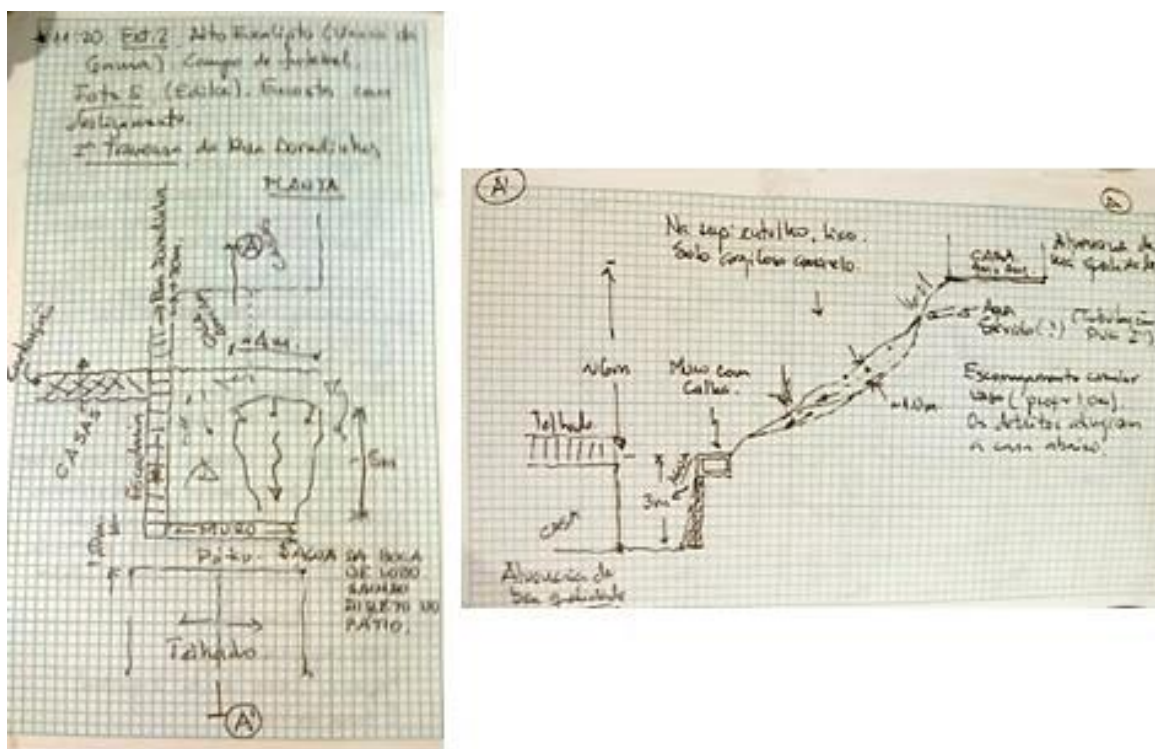 11:20. Est. 2 Alto Eucalipto (Vasco da
Gama). Campo de futebol.
Foto 5 (Edilei). Encosta com
deslizamento.
2ª Travessa da Rua Douradinho,
PLANTA
A
→ Rua Douradinho
4m
CASAS
Escadaria
6m
MURO
Pátio
ÁGUA DA BOCA
DE LOBO
SAINDO
DIRETO NO
PÁTIO.
Telhado
A'
A'
Na sup. entulho, lixo.
Solo argiloso amarelo.
CASA
Alvenaria de
má qualidade
Água
Servida (?)
(Tubulação
PVC 2")
~6m
Muro com
Calha.
Telhado
~1.0m.
Escorregamento
Os detritos atingiram
a casa abaixo.
3m
CASA
Alvenaria de
boa qualidade